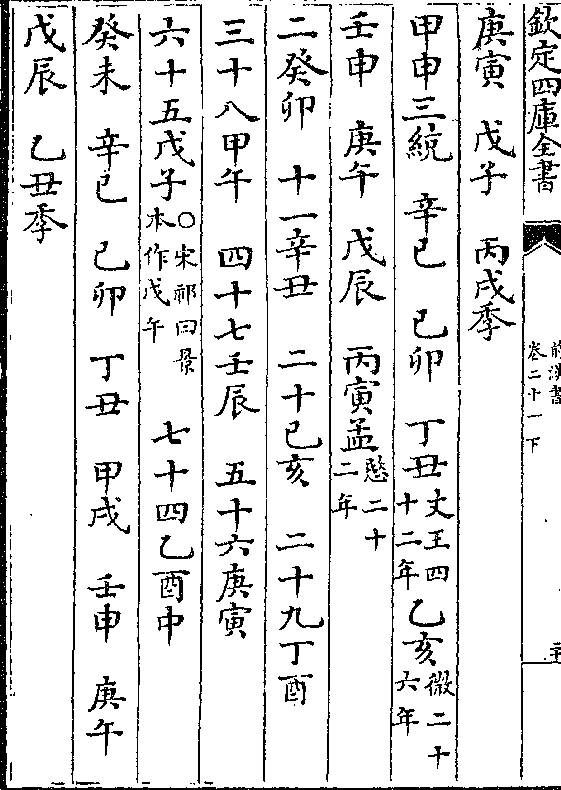 欽定四庫全書
前漢書
卷二十一下
庚寅 戊子 丙戌季
甲申三統 辛巳 己卯 丁丑文王四十二年乙亥微二十六年
壬申 庚午 戊辰 丙寅孟愍二十二年
二癸卯 十一辛丑 二十己亥 二十九丁酉
三十八甲午 四十七壬辰 五十六庚寅
六十五戊子○宋祁曰景本作戊午 七十四乙酉中
癸未 辛巳 己卯 丁丑 甲戌 壬申 庚午
戊辰 乙丑季